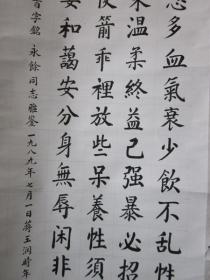 思多血氣衰少飲不乱性
来温柔終益己强暴必招
使箭乖裡放些呆養性須
要和藹安分身無辱闲非
百字銘 永餘同志雅鑒 一九八九年七月一日蒋玉润時年